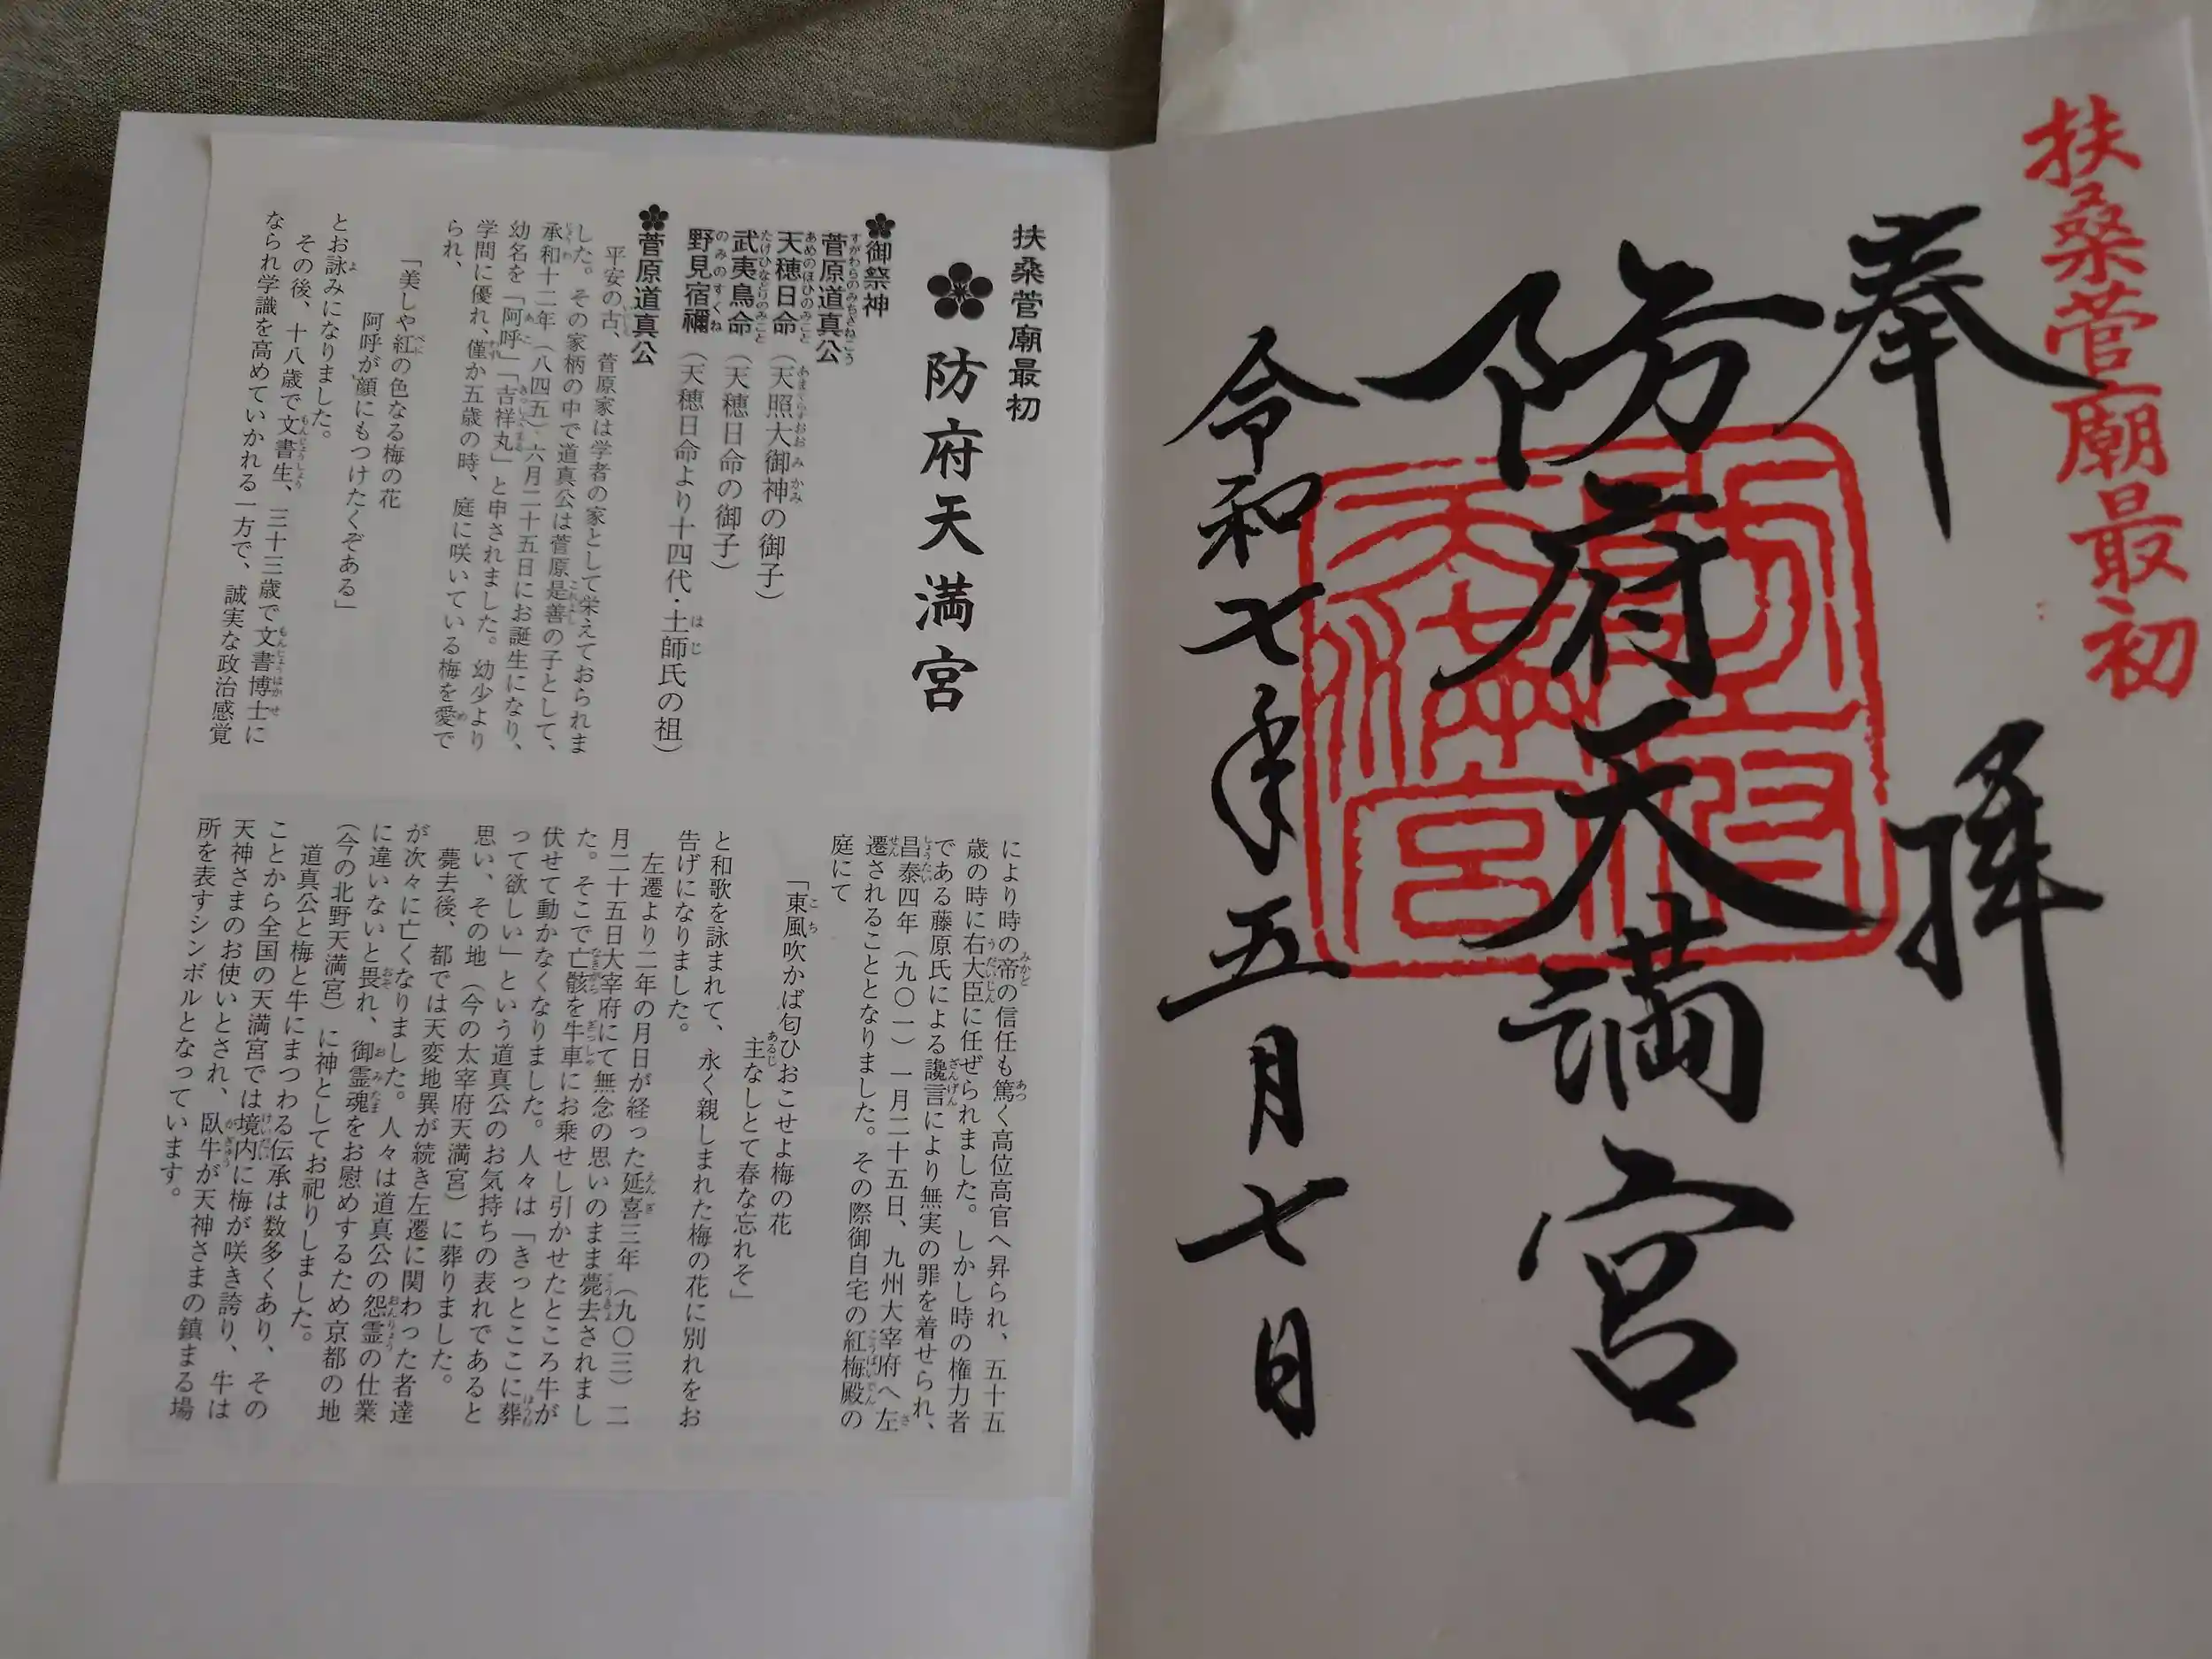 扶桑菅廟最初
奉拝
防府天満宮
防府天満宮
令和七年五月七日
扶桑菅廟最初
防府天満宮
御祭神
菅原道真公
すがわらのみちざねこう
天穂日命（天照大御神の御子）
あめのほひのみこと　あまてらすおおみかみ
武夷鳥命（天穂日命の御子）
たけひなどりのみこと
野見宿禰（天穂日命より十四代・土師氏の祖）
のみのすくね　はじ
菅原道真公
平安の古、菅原家は学者の家として栄えておられま
いにしえ
した。その家柄の中で道真公は菅原是善の子として、
これよし
承和十二年（八四五）六月二十五日にお誕生になり、
じょうわ
幼名を「阿呼」「吉祥丸」と申されました。幼少より
あこ　きっしょうまる
学問に優れ、僅か五歳の時、庭に咲いている梅を愛で
わず　め
られ、
「美しや紅の色なる梅の花
べに
阿呼が顔にもつけたくぞある」
とお詠みになりました。
よ
その後、十八歳で文書生、三十三歳で文書博士に
もんじょうしょう　もんじょうはかせ
なられ学識を高めていかれる一方で、誠実な政治感覚
により時の帝の信任も篤く高位高官へ昇られ、五十五
みかど　あつ
歳の時に右大臣に任ぜられました。しかし時の権力者
うだいじん
である藤原氏による讒言により無実の罪を着せられ、
ざんげん
昌泰四年（九〇一）一月二十五日、九州大宰府へ左
しょうたい　さ
遷されることとなりました。その際御自宅の紅梅殿の
せん　こうばいでん
庭にて
「東風吹かば匂ひおこせよ梅の花
こち
主なしとて春な忘れそ」
あるじ
と和歌を詠まれて、永く親しまれた梅の花に別れをお
告げになりました。
左遷より二年の月日が経った延喜三年（九〇三）二
えんぎ
月二十五日大宰府にて無念の思いのまま薨去されまし
こうきょ
た。そこで亡骸を牛車にお乗せし引かせたところ牛が
なきがら　ぎっしゃ
伏せて動かなくなりました。人々は「きっとここに葬
ほうむ
って欲しい」という道真公のお気持ちの表れであると
思い、その地（今の太宰府天満宮）に葬りました。
薨去後、都では天変地異が続き左遷に関わった者達
が次々に亡くなりました。人々は道真公の怨霊の仕業
おんりょう
に違いないと畏れ、御霊魂をお慰めするため京都の地
おそ　おみたま
（今の北野天満宮）に神としてお祀りしました。
道真公と梅と牛にまつわる伝承は数多くあり、その
ことから全国の天満宮では境内に梅が咲き誇り、牛は
けいだい
天神さまのお使いとされ、臥牛が天神さまの鎮まる場
がぎゅう
所を表すシンボルとなっています。